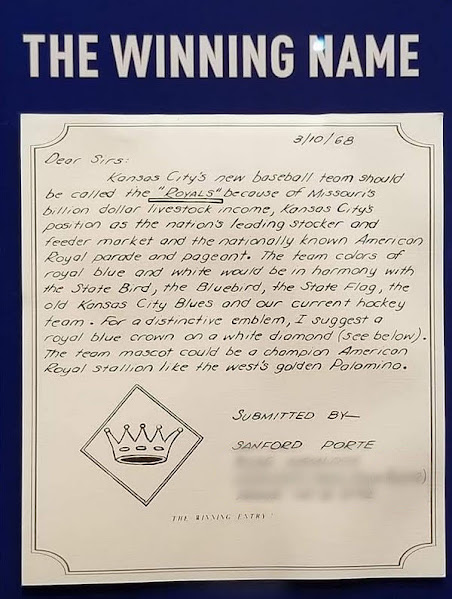 THE WINNING NAME
3/10/68
Dear Sirs:
Kansas City's new baseball team should
be called the "ROYALS" because of Missouri's
billion dollar livestock income, Kansas City's
position as the nation's leading stocker and
feeder market and the nationally known American
Royal parade and pageant. The team colors of
royal blue and white would be in harmony with
the State Bird, the Bluebird, the State Flag, the
old Kansas City Blues and our current hockey
team. For a distinctive emblem, I suggest a
royal blue crown on a white diamond (see below).
The team mascot could be a champion American
Royal stallion like the west's golden Palomino.
SUBMITTED BY—
SANFORD PORTE
THE WINNING ENTRY!